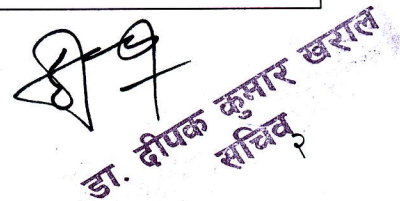 डा. दीपक कुमार खराल
सचिव
२